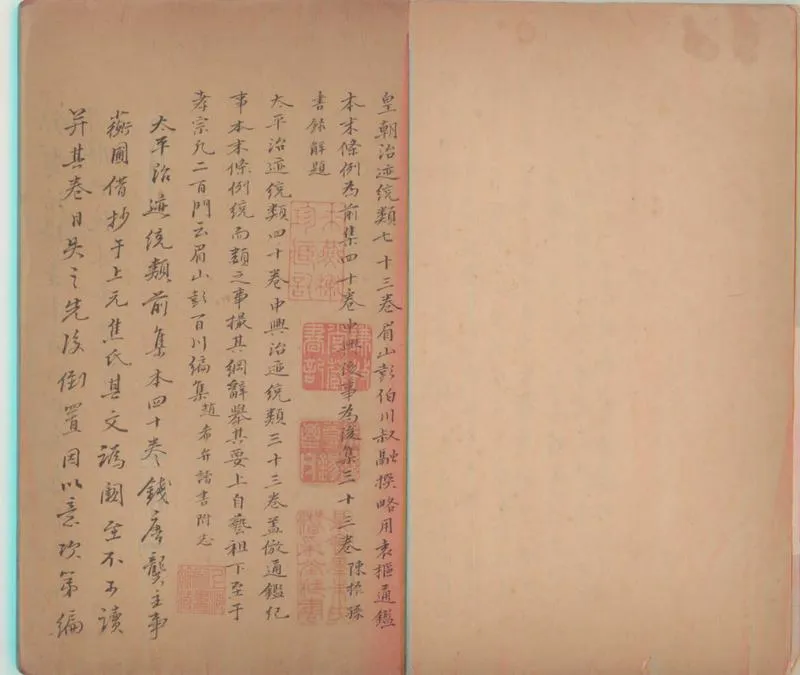 皇朝治迹統類七十三卷眉山彭伯川叔融撰略用袁樞通鑑
本末條例為前集四十卷中興後事為後集三十三卷陳振孫
書錄解題
太平治迹統類四十卷中興治迹統類三十三卷蓋倣通鑑紀
事本末條例統而類之事撮其綱辭舉其要上自藝祖下至于
孝宗凡二百門云眉山彭百川編集趙希弁讀書附志
太平治迹統類前集本四十卷錢唐龔主事
蘅圃借抄于上元焦氏其文譌闕至不可讀
并其卷目失之先後倒置因以意次第編